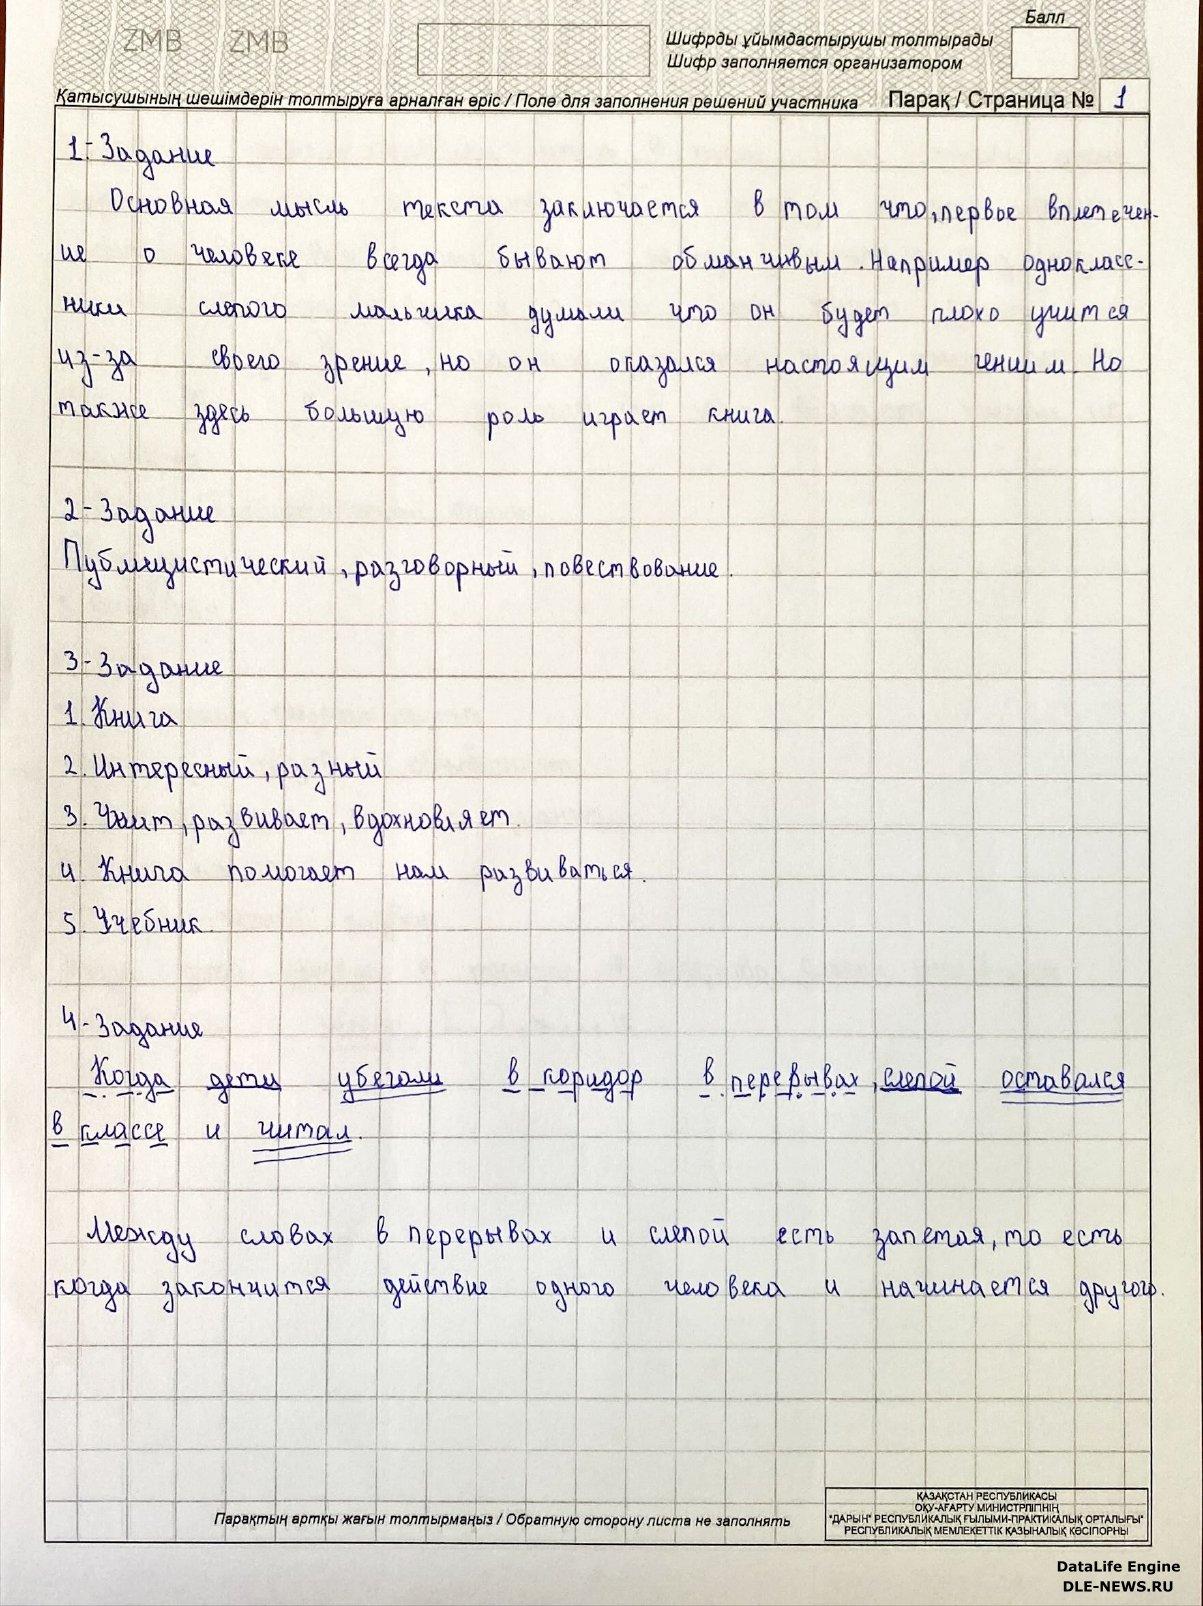 ZMB ZMB
Балл
Шифрды ұйымдастырушы толтырады
Шифр заполняется организатором
Қатысушының шешімдерін толтыруға арналған өріс / Поле для заполнения решений участника Парақ / Страница № 1
1-Задание
Основная мысль текста заключается в том что, первое вплетечен-
ие о человеке всегда бывают обманчивым. Например однокласс-
ники слепого мальчика думали что он будет плохо учится
из-за своего зрение, но он оказался настоящим гением. Но
также здесь большую роль играет книга.
2-Задание
Публицистический, разговорный, повествование.
3-Задание
1. Книга
2. Интересный, разный
3. Учит, развивает, вдохновляет.
4. Книга помогает нам развиваться.
5. Учебник.
4-Задание
Когда дети убегали в коридор в перерывах, слепой оставался
в классе и читал.
Между словах в перерывах и слепой есть запетая, то есть
когда закончится действие одного человека и начинается другого.
Парақтың артқы жағын толтырмаңыз / Обратную сторону листа не заполнять
ҚАЗАҚСТАН РЕСПУБЛИКАСЫ
ОҚУ-АҒАРТУ МИНИСТРЛІГІНІҢ
"ДАРЫН" РЕСПУБЛИКАЛЫҚ ҒЫЛЫМИ-ПРАКТИКАЛЫҚ ОРТАЛЫҒЫ"
РЕСПУБЛИКАЛЫҚ МЕМЛЕКЕТТІК ҚАЗЫНАЛЫҚ КӘСІПОРНЫ
DataLife Engine
DLE-NEWS.RU